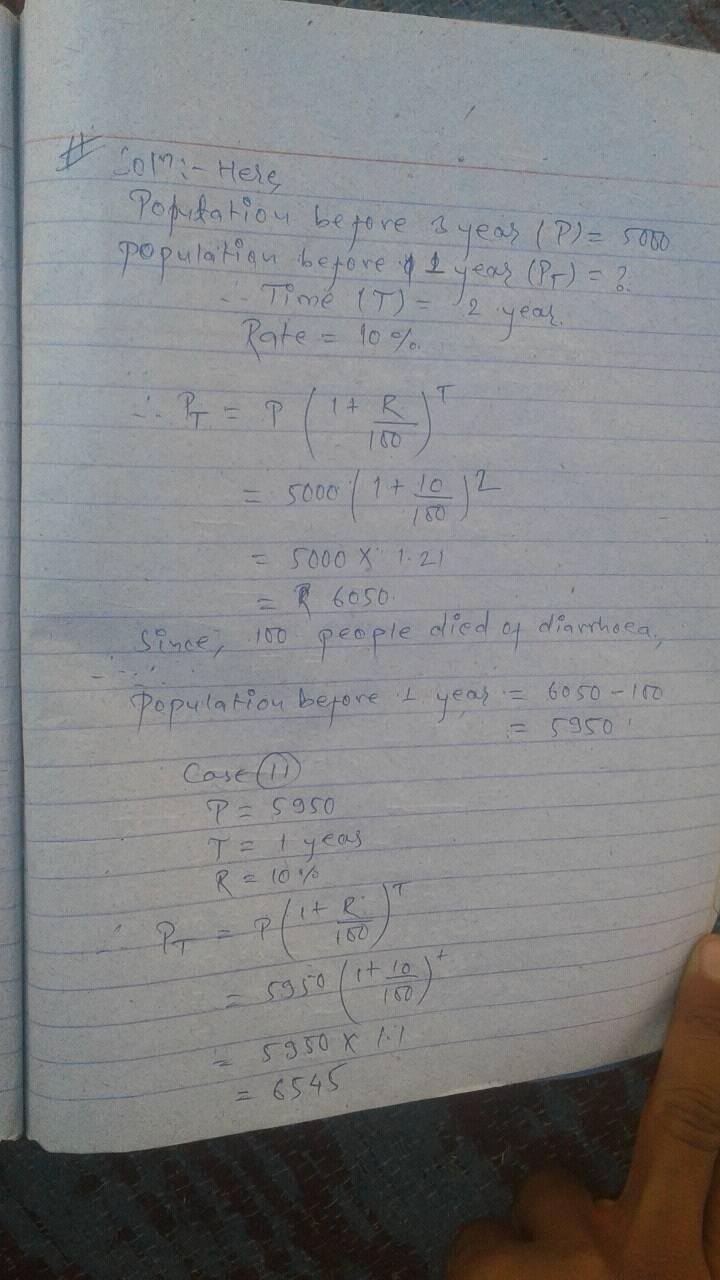 # Soln:- Here,
Population before 3 year (P) = 5000
Population before 1 year (PT) = ?
∴ Time (T) = 2 year.
Rate = 10%.
∴ PT = P (1 + R/100)^T
= 5000 (1 + 10/100)^2
= 5000 X 1.21
= 6050.
Since, 100 people died of diarrhoea,
∴
Population before 1 year = 6050 - 100
= 5950
Case (II)
P = 5950
T = 1 year
R = 10%
∴ PT = P (1 + R/100)^T
= 5950 (1 + 10/100)^1
= 5950 X 1.1
= 6545